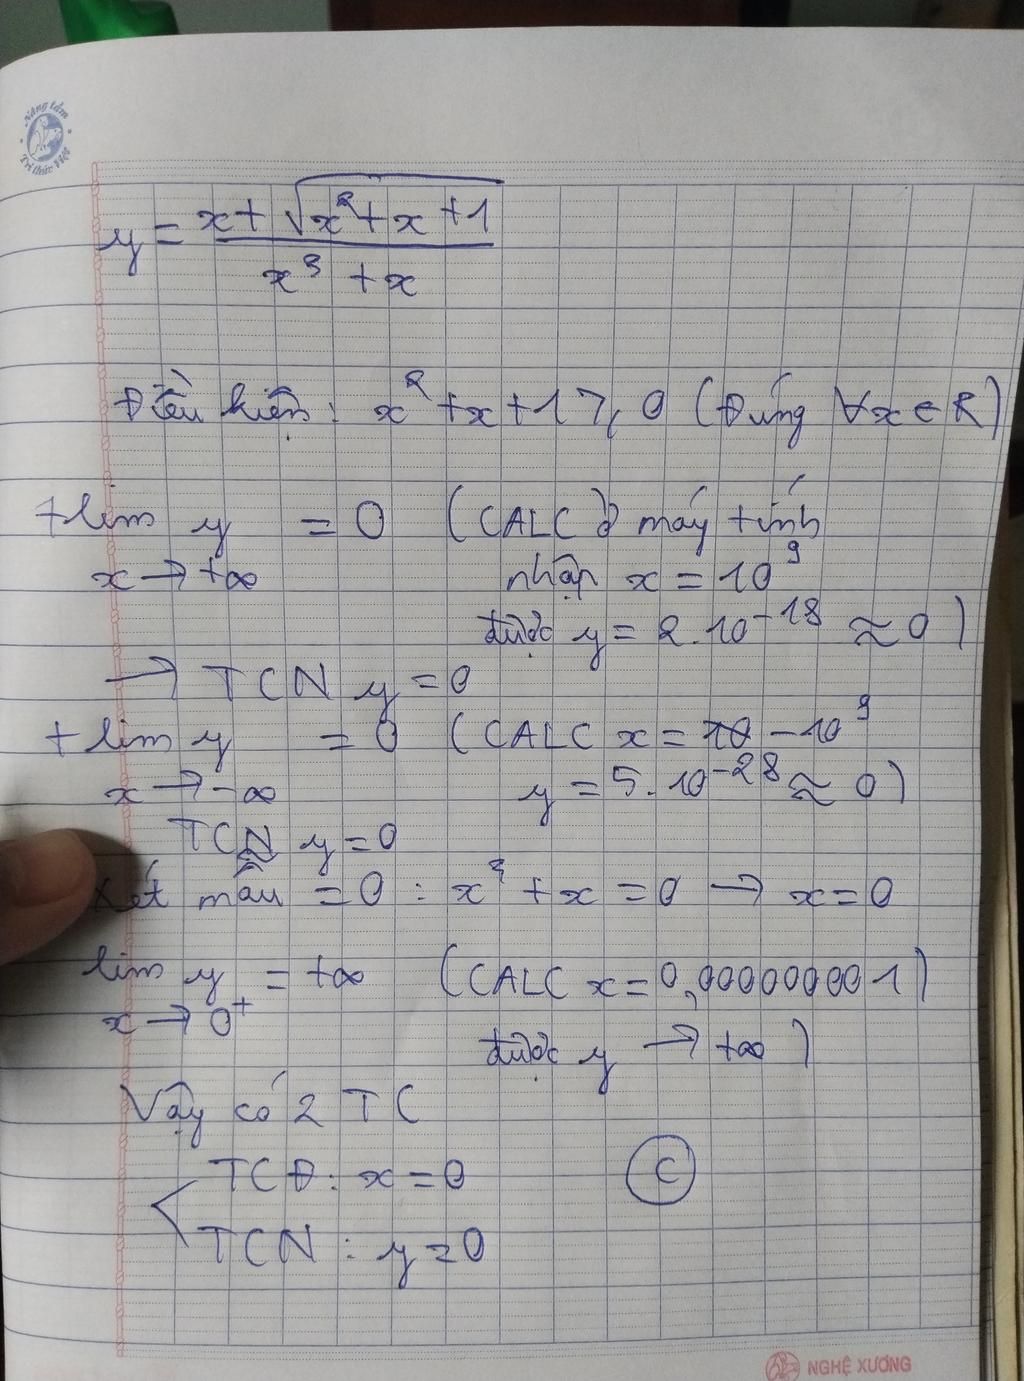 Nâng tầm
Tri thức Việt
y = x + √x² + x + 1 / x³ + x
Điều kiện: x² + x + 1 ⩾ 0 (Đúng ∀x ∈ R)
+ lim y = 0 (CALC ở máy tính
x → +∞ nhập x = 10⁹
được y = 2.10⁻¹⁸ ≈ 0)
→ TCN y = 0
+ lim y = 0 (CALC x = -10⁹
x → -∞ y = 5.10⁻²⁸ ≈ 0)
TCN y = 0
Xét mẫu = 0 : x³ + x = 0 → x = 0
lim y = +∞ (CALC x = 0,0000000001)
x → 0⁺ được y → +∞)
Vậy có 2 TC
TCĐ: x = 0 C
TCN: y = 0
NGHỆ XƯƠNG